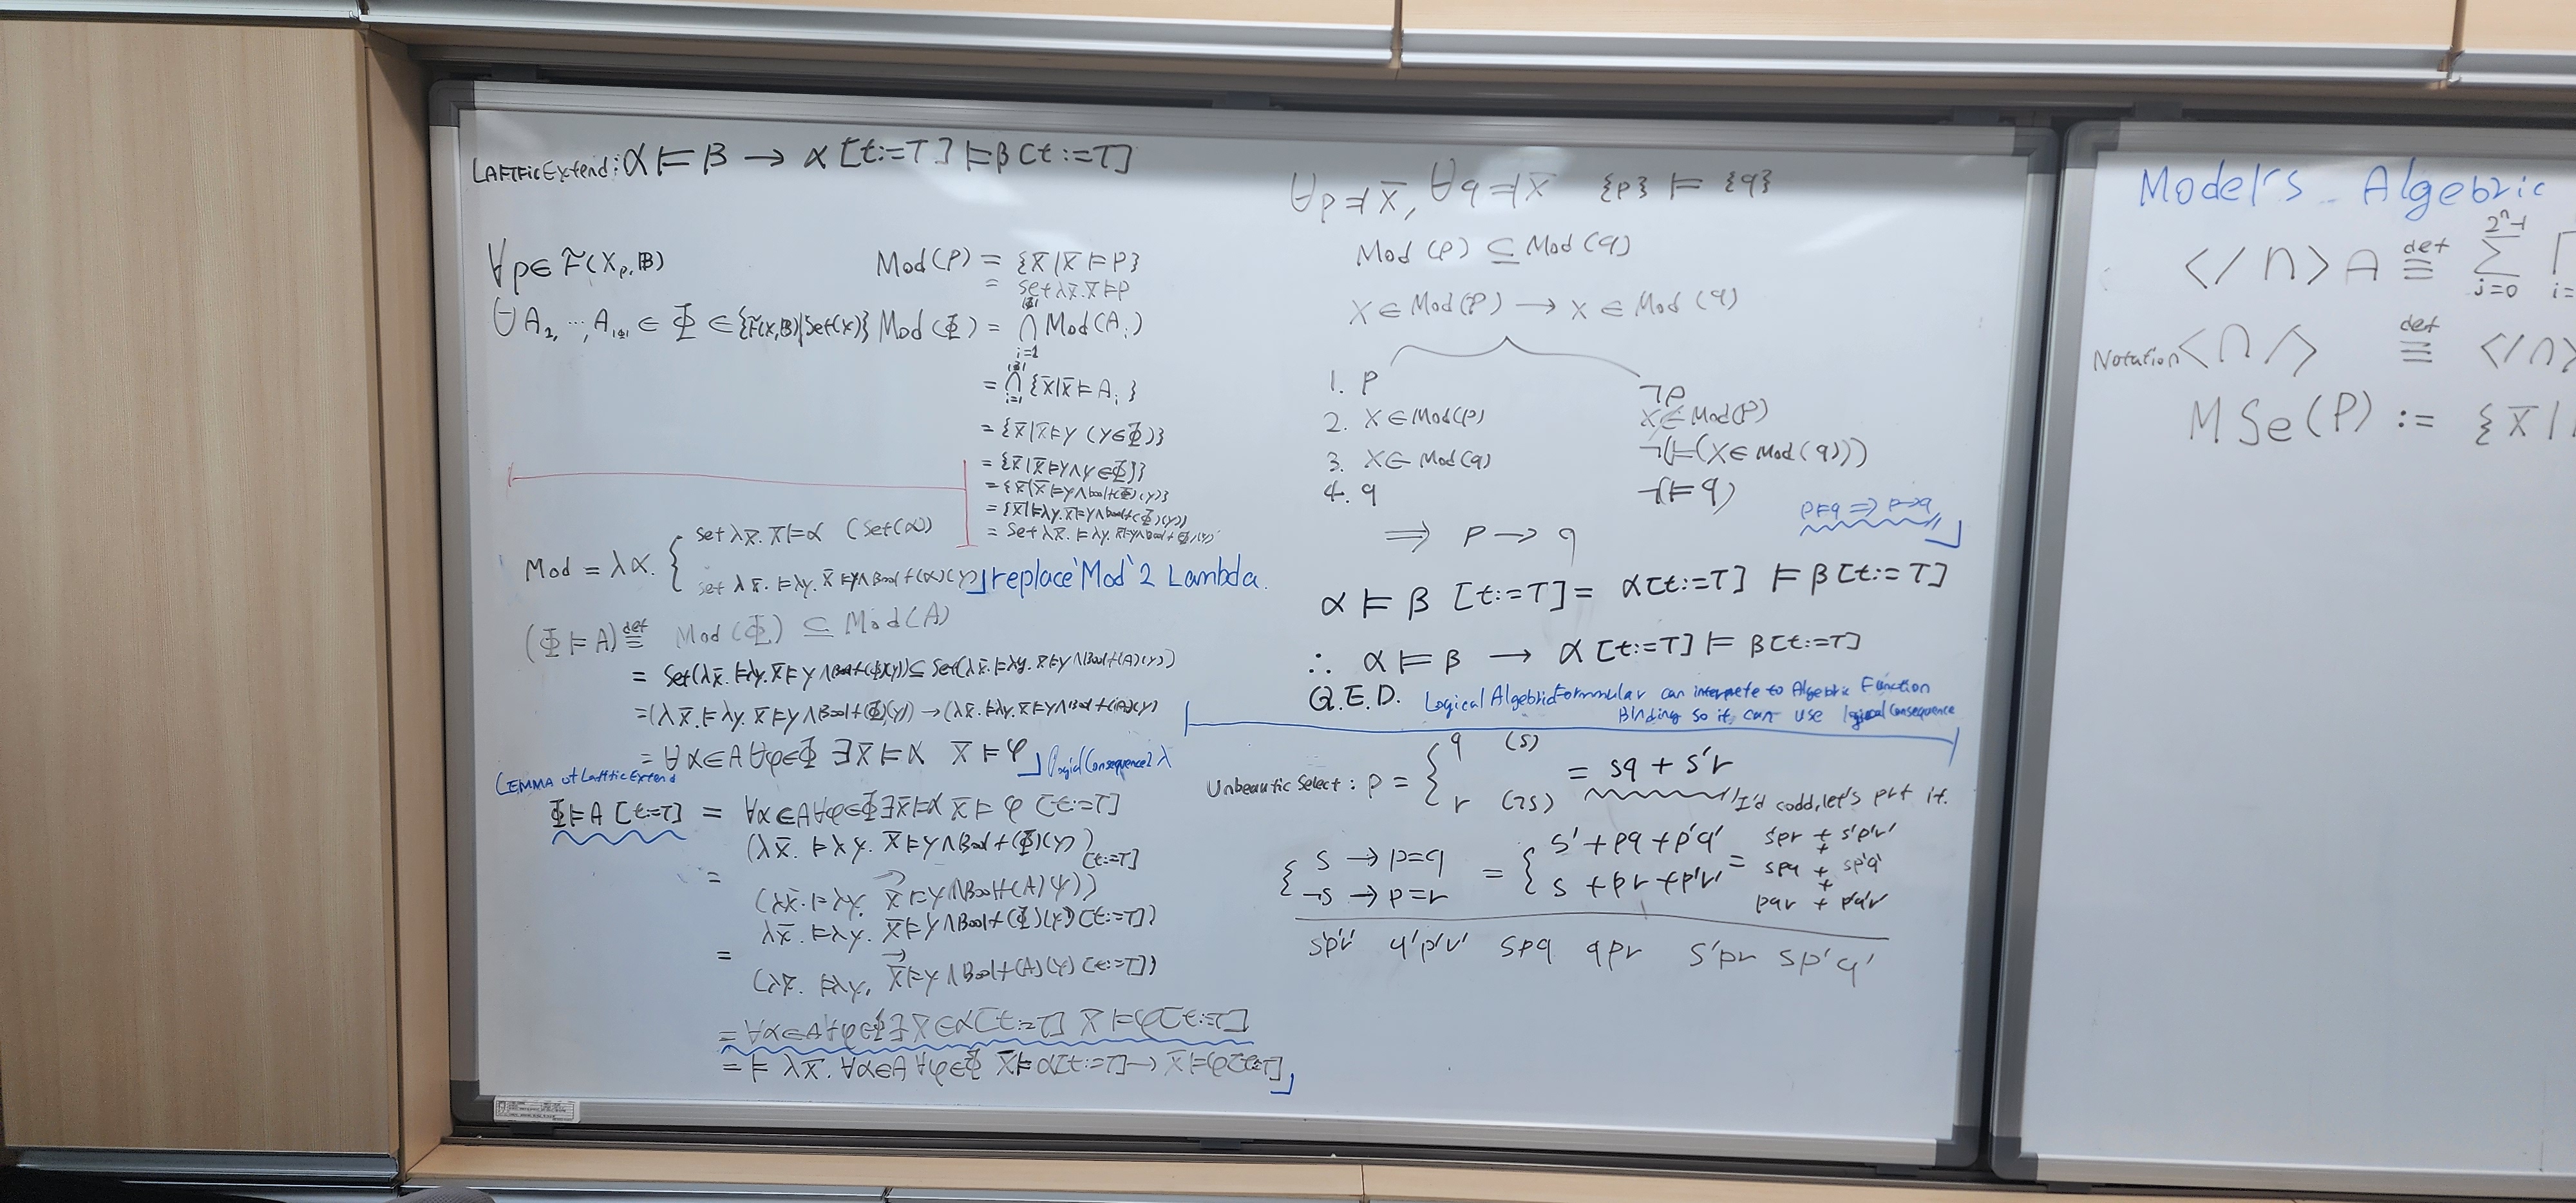 LAFTFicExtend: α ⊨ β → α [t:=T] ⊨ β [t:=T]
∀p∈ F̃(Xₚ, 𝔹)
Mod(P) = {x̄ | x̄ ⊨ P}
= set λx̄. x̄⊨p
∀A₁, ⋯, A_|Φ| ∈ Φ ∈ {F̃(X,𝔹)|Set(x)} Mod(Φ) = ⋂_{i=1}^{|Φ|} Mod(A_i)
= ⋂_{i=1}^{|Φ|} {x̄ | x̄ ⊨ A_i}
= {x̄ | x̄⊨y (y∈Φ)}
= {x̄ | x̄⊨y∧y∈Φ}}
= {x̄ | x̄⊨y∧bool+(Φ)(y)}
= {x̄ | ⊨λy. x̄⊨y∧bool+(Φ)(y)}
= Set λx̄. ⊨λy. x̄⊨y∧bool+(Φ)(y)
Mod = λα. {
set λx̄. x̄⊨α (Set(α))
set λx̄. ⊨λy. x̄⊨y∧Bool+(α)(y) replace 'Mod' 2 Lambda.
(Φ ⊨ A) ≝ Mod(Φ) ⊆ Mod(A)
= Set(λx̄. ⊨λy. x̄⊨y∧Bool+(Φ)(y)) ⊆ Set(λx̄. ⊨λy. x̄⊨y∧Bool+(A)(y))
= (λx̄. ⊨λy. x̄⊨y∧Bool+(Φ)(y)) → (λx̄. ⊨λy. x̄⊨y∧Bool+(A)(y)
= ∀α∈A ∀φ∈Φ ∃x̄⊨α x̄⊨φ
LEMMA of LaftficExtend
Φ⊨A [t:=T] = ∀α∈A∀φ∈Φ∃x̄⊨α x̄⊨φ [t:=T]
= (λx̄. ⊨λy. x̄⊨y∧Bool+(Φ)(y) → [t:=T]
(λx̄. ⊨λy. x̄⊨y∧Bool+(A)(y))
= λx̄. ⊨λy. x̄⊨y∧Bool+(Φ)(y) [t:=T]) →
(λx̄. ⊨λy. x̄⊨y∧Bool+(A)(y) [t:=T])
= ∀α∈A∀φ∈Φ∃x̄∈α[t:=T] x̄⊨φ[t:=T]
= ⊨ λx̄. ∀α∈A ∀φ∈Φ x̄⊨α[t:=T] → x̄⊨φ[t:=T]
∀p⫤x̄, ∀q⫤x̄ {p} ⊨ {q}
Mod (p) ⊆ Mod (q)
X ∈ Mod(P) → X ∈ Mod (q)
1. P ¬P
2. X ∈ Mod(p) X∉Mod(P)
3. X∈ Mod(q) ¬(⊨(X∈Mod(q)))
4. q ¬(⊨q)
p⊨q ⇒ p→q
⟹ P → q
α ⊨ β [t:=T] = α[t:=T] ⊨ β[t:=T]
∴ α ⊨ β → α[t:=T] ⊨ β[t:=T]
Q.E.D. Logical Algebric Formular can interpete to Algebric Function
Binding so it can use logical Consequence
Unbeautic Select : p = { q (s)
r (¬s) = sq + s'r
I'd codd, let's prt it.
{ s → p=q
¬s → p=r = { s' + pq + p'q'
s + pr + p'r' = s'pr + s'p'r'
+
spq + sp'q'
+
pqr + p'q'r'
s'p'r' q'p'r' spq qpr s'pr sp'q'
Model's Algebric
</ ∩> A ≝ ∑_{j=0}^{2ⁿ-1}
i=
Notation <∩ /> ≝ </∩>
MSe(P) := {x̄ |